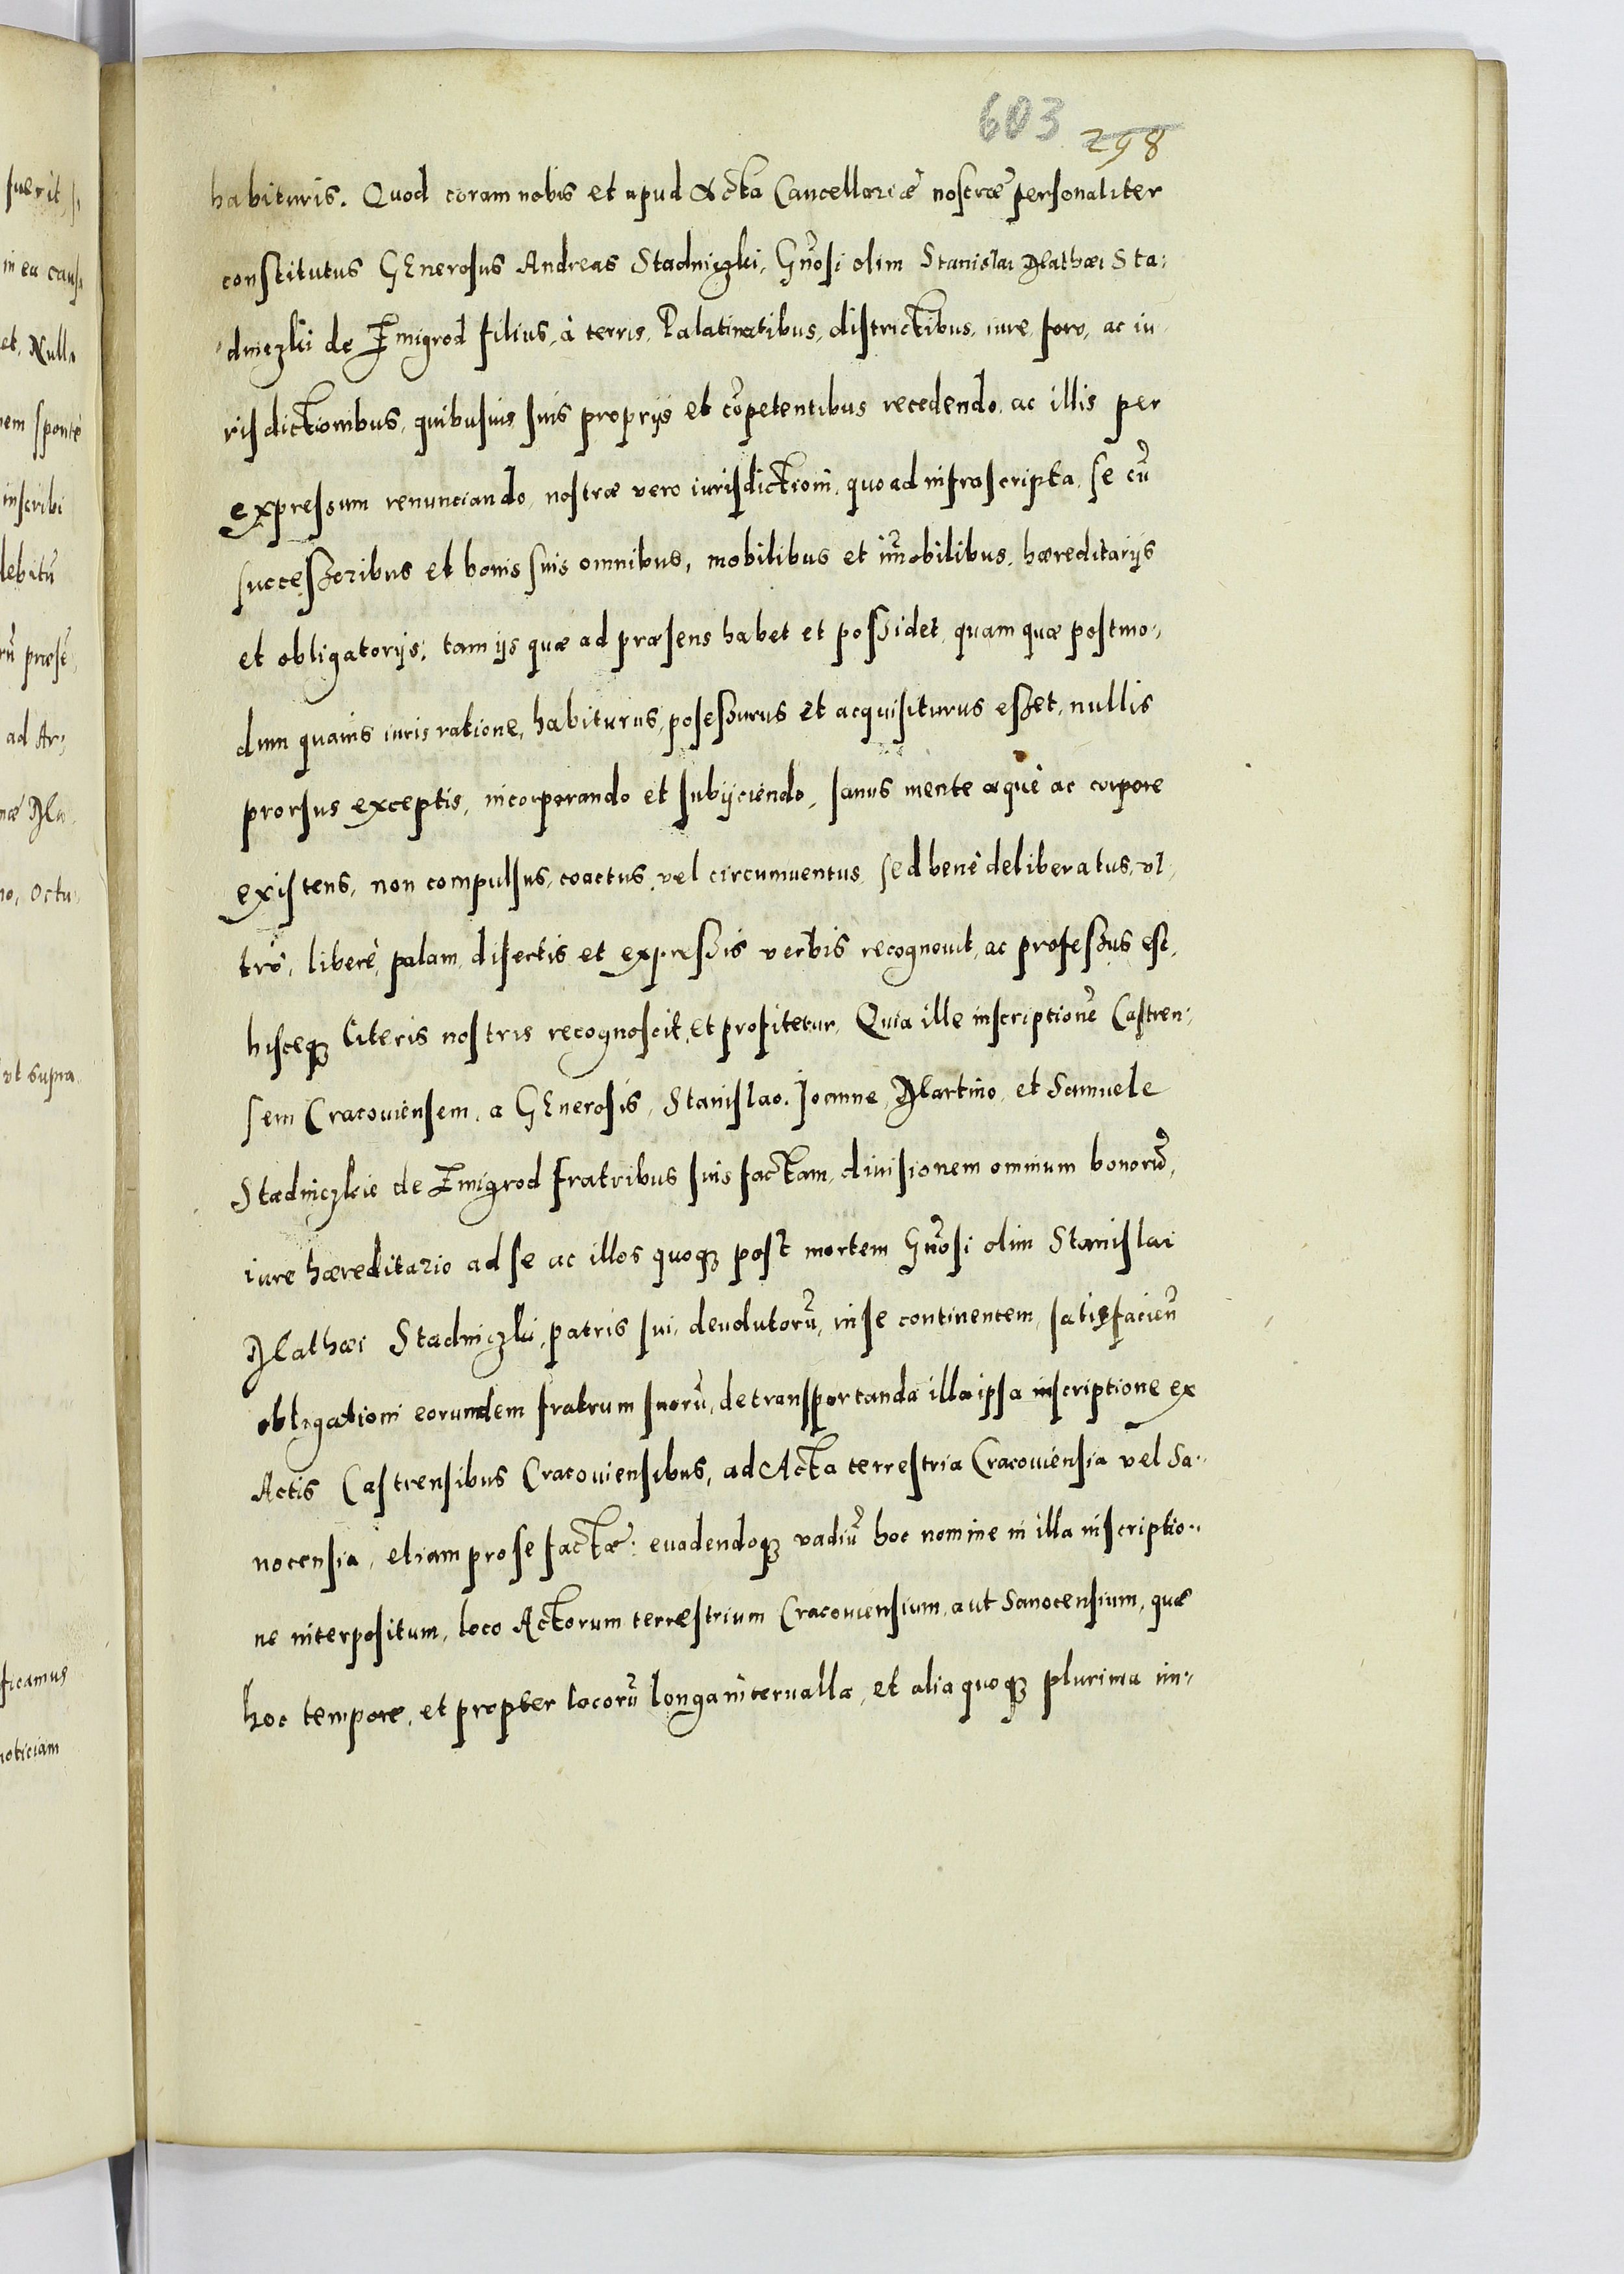 603
298
habituris. Quod coram nobis et apud Acta Cancellariæ nostræ personaliter
constitutus GEnerosus Andreas Stadniczki, Gn̄osi olim Stanislai Mathæi Sta:
dniczki de Zmigrod filius, à terris, Palatinatibus, districtibus, iure, foro, ac iu:
risdictionibus, quibusuis suis proprijs et cōpetentibus recedendo, ac illis per
expressum renunciando, nostræ vero iurisdictioni, quo ad infrascripta, se cū
successoribus et bonis suis omnibus, mobilibus et im̄obilibus, hæreditarijs
et obligatorijs; tam ijs quæ ad præsens habet et possidet, quam quæ postmo:
dum quauis iuris ratione, habiturus, posessurus et acquisiturus esset, nullis
prorsus exceptis, incorporando et subijciendo, sanus mente æquè ac corpore
existens, non compulsus, coactus, vel circumuentus, sed benè deliberatus, vl:
trò, liberè, palam, disertis et expressis verbis recognouit, ac professus est,
hisceq₃ literis nostris recognoscit, et profitetur, Quia ille inscriptionē Castren:
sem Cracouiensem, a GEnerosis, Stanislao, Joanne, Martino, et Samuele
Stadniczkie de Zmigrod fratribus suis factam, diuisionem omnium bonorū,
iure hæreditario ad se ac illos quoq₃ post mortem Gn̄osi olim Stanislai
Mathæi Stadniczki, patris sui, deuolutorū, in se continentem, satisfacien̄
obligationi eorumdem fratrum suorū, de transportanda illa ipsa inscriptione ex
Actis Castrensibus Cracouiensibus, ad Acta terrestria Cracouiensia vel Sa:
nocensia, etiam pro se factæ: euadendoq₃ vadiū hoc nomine in illa inscriptio:
ne interpositum, loco Actorum terrestrium Cracouiensium, aut Sanocensium, quæ
hoc tempore, et propter locorū longa interualla, et alia quoq₃ plurima im:
fuerit, si
in ea caus
et, Null
sponte
inscribi
debitū
præsē
ad Ar:
Octu:
vt supra
ficamus
noticiam